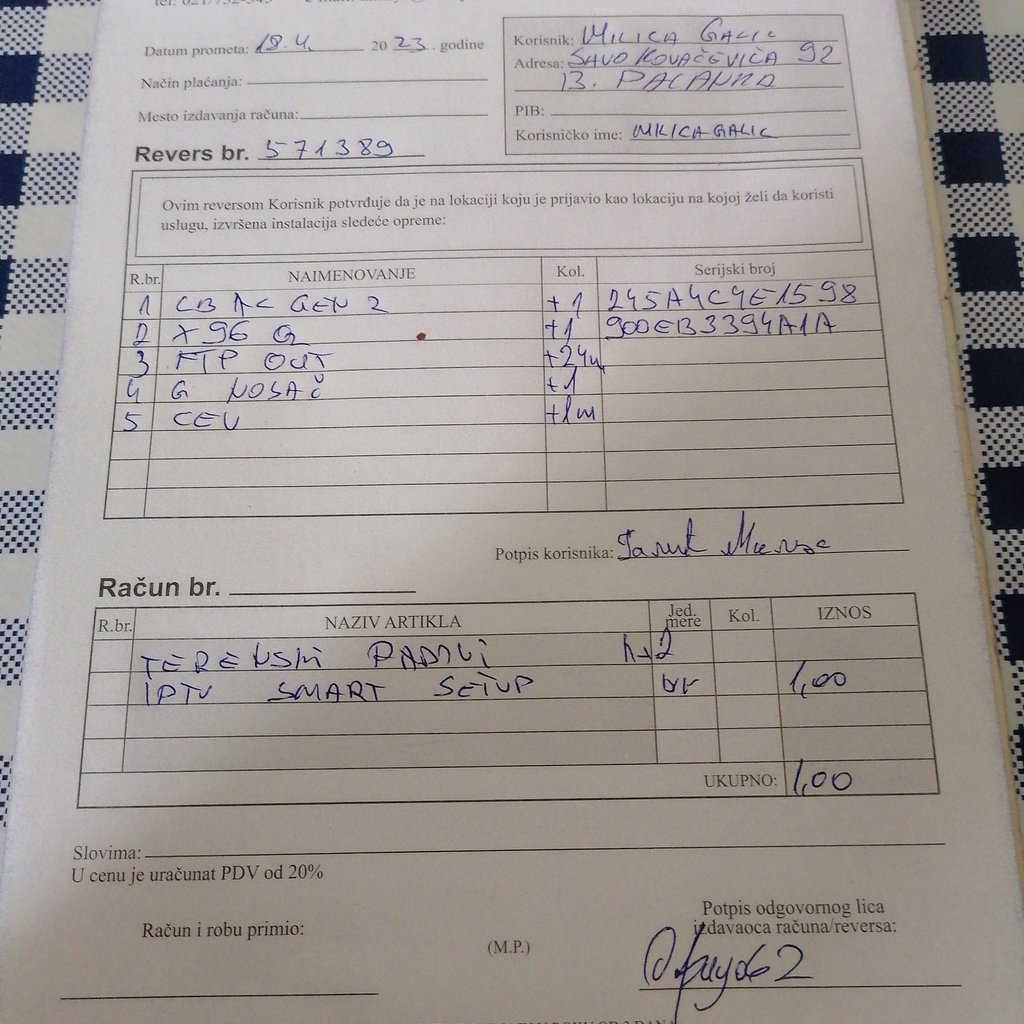 Datum prometa: 18.4. 2023. godine
Način plaćanja:
Mesto izdavanja računa:
Revers br. 571389
Korisnik: MILICA GALIC
Adresa: SAVO KOVAČEVIĆA 92
B. PALANKA
PIB:
Korisničko ime: MILICAGALIC
Ovim reversom Korisnik potvrđuje da je na lokaciji koju je prijavio kao lokaciju na kojoj želi da koristi
uslugu, izvršena instalacija sledeće opreme:
R.br. NAIMENOVANJE Kol. Serijski broj
1 LB AC GEN 2 +1 245A4C4E1598
2 X96 Q +1 900EB3394A1A
3 FTP OUT +24m
4 G NOSAČ +1
5 CEV +1m
Potpis korisnika:
Račun br.
R.br. NAZIV ARTIKLA Jed. mere Kol. IZNOS
TERENSKI RADOVI
IPTV SMART SETUP 1,00
UKUPNO: 1,00
Slovima:
U cenu je uračunat PDV od 20%
Račun i robu primio:
(M.P.)
Potpis odgovornog lica
izdavaoca računa/reversa: